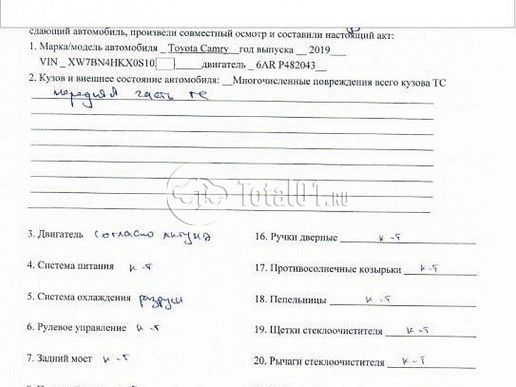 сдающий автомобиль, произвели совместный осмотр и составили настоящий акт:
1. Марка/модель автомобиля _ Toyota Camry__год выпуска __ 2019___
VIN _ XW7BN4HKX0S10 _____двигатель _ 6AR P482043__
2. Кузов и внешнее состояние автомобиля: __Многочисленные повреждения всего кузова ТС
передняя часть ТС
Total01.RU
3. Двигатель согласно
4. Система питания к-т
5. Система охлаждения
6. Рулевое управление к-т
7. Задний мост к-т
16. Ручки дверные к-т
17. Противосолнечные козырьки к-т
18. Пепельницы к-т
19. Щетки стеклоочистителя к-т
20. Рычаги стеклоочистителя к-т